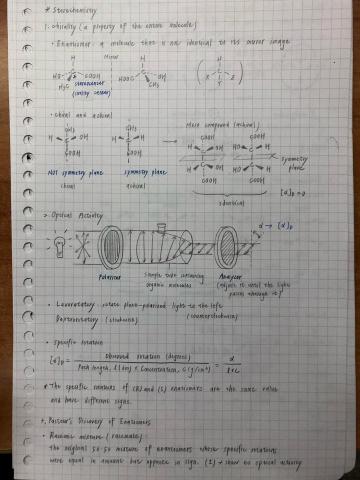 # Stereochemistry
1. chirality (a property of the entire molecule)
· Enantiomer a molecule that is not identical to its mirror image
Mirror
H H H
HO C COOH HOOC C OH X C Z
H3C CH3 Y
stereocenter
(chirality center)
· chiral and achiral
Meso compound (achiral)
CH3 CH3 COOH COOH
H C OH H C H H C OH HO C H
COOH COOH H C OH HO C H
COOH COOH
symmetry
plane
NOT symmetry plane symmetry plane
chiral achiral
identical
[α]D = 0
2. Optical Activity
α → [α]D
Polarizer
Sample tube containing
organic molecules
Analyzer
(adjust it until the light
passes through it)
· Levorotatory rotate plane-polarized light to the left
(counterclockwise)
Dextrorotatory (clockwise)
· specific rotation
[α]D = Observed rotation (degrees) / Path length, l (dm) × Concentration, c (g/cm³) = α / l × c
* The specific rotations of (R) and (S) enantiomers are the same value
and have different signs.
3. Pasteur's Discovery of Enantiomers
· Racemic mixture (racemate)
The original 50:50 mixture of enantiomers whose specific rotations
were equal in amount but opposite in sign. (±) → show no optical activity